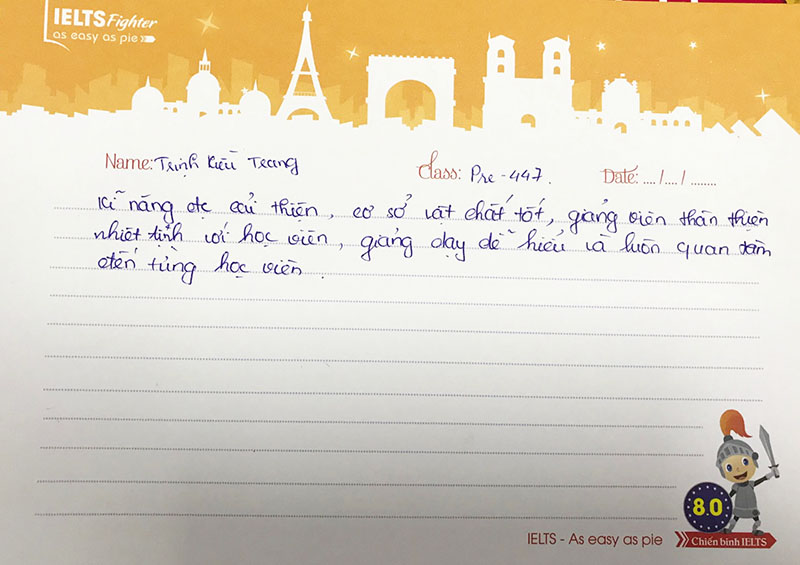 IELTS Fighter
as easy as pie
Name: Trịnh Kiều Trang Class: Pre - 447. Date: .... /.... / ........
Kĩ năng đc cải thiện, cơ sở vật chất tốt, giảng viên thân thiện
nhiệt tịnh với học viên, giảng dạy dễ hiểu và luôn quan tâm
đến từng học viên.
8.0
IELTS - As easy as pie Chiến binh IELTS